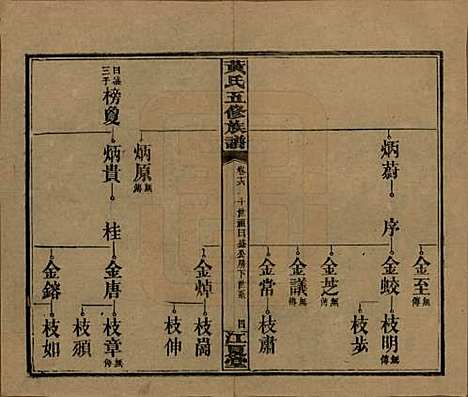 炳蔚
序
金至 無傳
金蛟
金芝 無傳
金議 無傳
金常
枝明 無傳
枝步
枝肅
黃氏五修族譜
卷六
十世派曰益公房下世系
四
江夏堂
曰益三子
榜夐
炳原 無傳
炳貴
桂
金焯
金唐
金鎔
枝崗
枝伸
枝章 無傳
枝頎
枝如